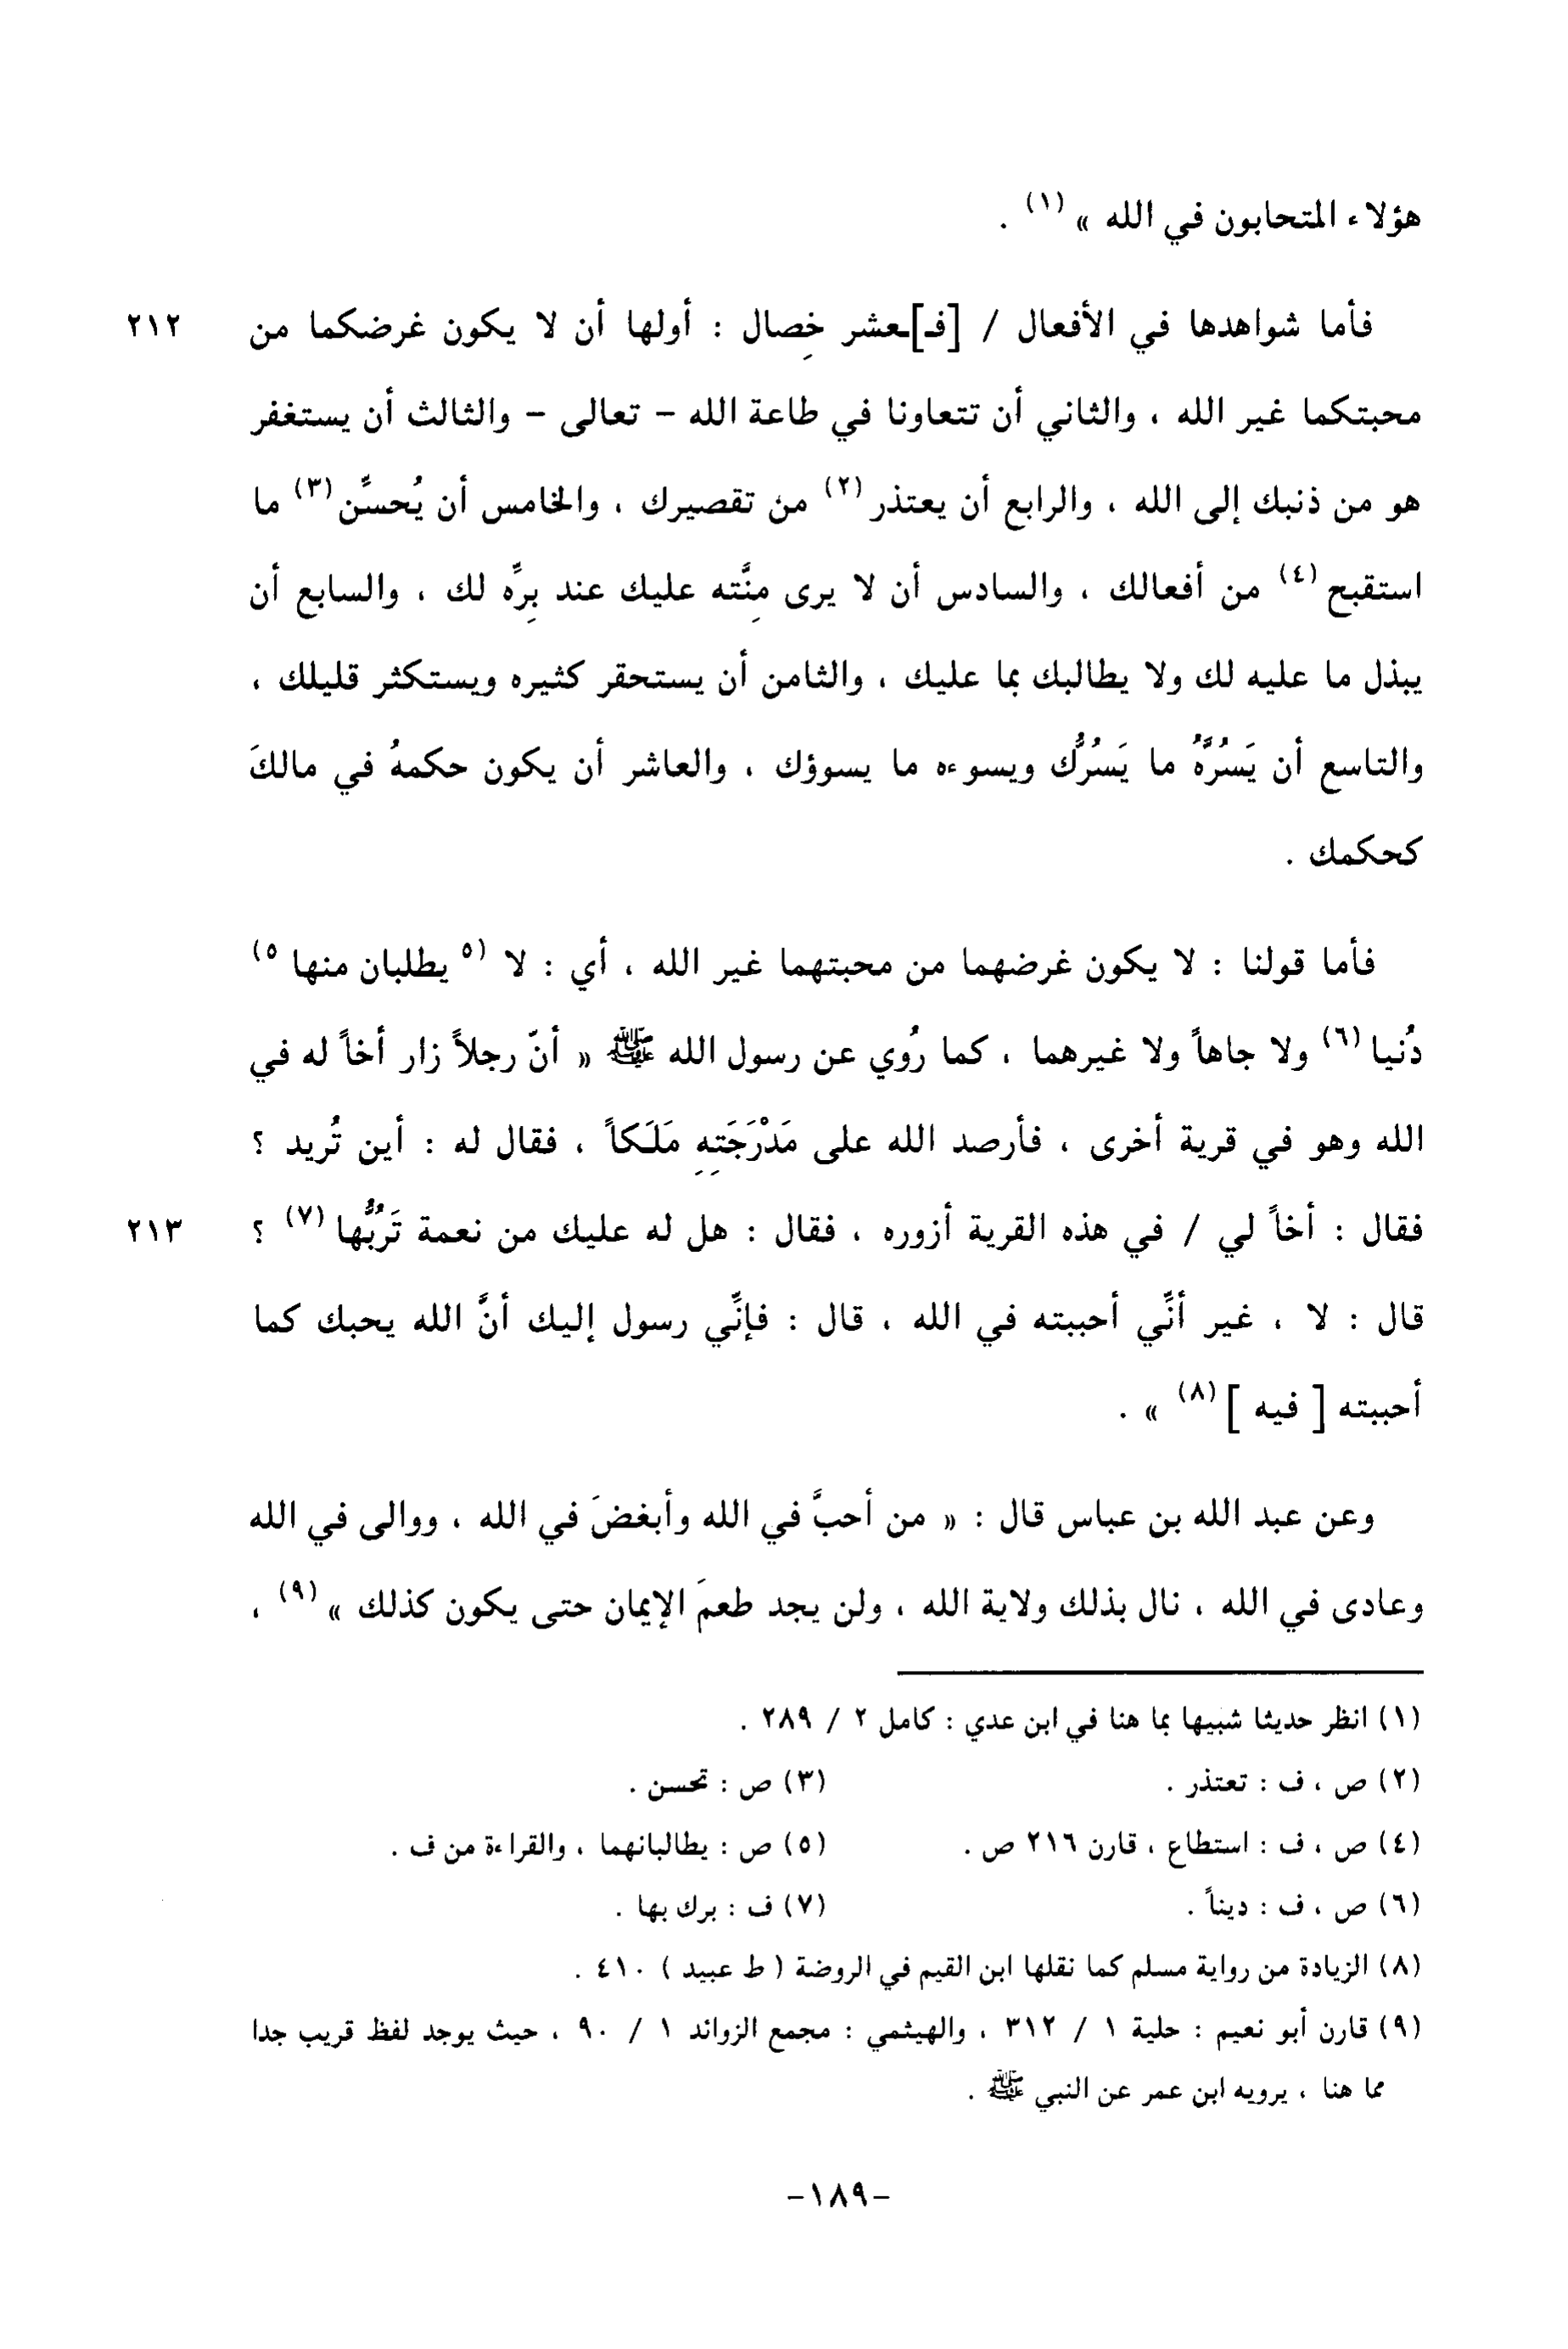 هؤلاء المتحابون في الله » (١) .
فأما شواهدها في الأفعال / [فـ]ـعشر خِصال : أولها أن لا يكون غرضكما من ٢١٢
محبتكما غير الله ، والثاني أن تتعاونا في طاعة الله – تعالى – والثالث أن يستغفر
هو من ذنبك إلى الله ، والرابع أن يعتذر (٢) من تقصيرك ، والخامس أن يُحسِّن (٣) ما
استقبح (٤) من أفعالك ، والسادس أن لا يرى مِنَّته عليك عند بِرِّه لك ، والسابع أن
يبذل ما عليه لك ولا يطالبك بما عليك ، والثامن أن يستحقر كثيره ويستكثر قليلك ،
والتاسع أن يَسُرَّهُ ما يَسُرُّك ويسوءه ما يسوؤك ، والعاشر أن يكون حكمهُ في مالكَ
كحكمك .
فأما قولنا : لا يكون غرضهما من محبتهما غير الله ، أي : لا (٥ يطلبان منها ٥)
دُنيا (٦) ولا جاهاً ولا غيرهما ، كما رُوي عن رسول الله ﷺ « أنّ رجلاً زار أخاً له في
الله وهو في قرية أخرى ، فأرصد الله على مَدْرَجَتِهِ مَلَكاً ، فقال له : أين تُريد ؟
فقال : أخاً لي / في هذه القرية أزوره ، فقال : هل له عليك من نعمة تَرُبُّها (٧) ؟ ٢١٣
قال : لا ، غير أنِّي أحببته في الله ، قال : فإنِّي رسول إليك أنَّ الله يحبك كما
أحببته [ فيه ] (٨) » .
وعن عبد الله بن عباس قال : « من أحبَّ في الله وأبغضَ في الله ، ووالى في الله
وعادى في الله ، نال بذلك ولاية الله ، ولن يجد طعمَ الإيمان حتى يكون كذلك » (٩) ،
(١) انظر حديثا شبيها بما هنا في ابن عدي : كامل ٢ / ٢٨٩ .
(٢) ص ، ف : تعتذر . (٣) ص : تحسن .
(٤) ص ، ف : استطاع ، قارن ٢١٦ ص . (٥) ص : يطالبانهما ، والقراءة من ف .
(٦) ص ، ف : ديناً . (٧) ف : برك بها .
(٨) الزيادة من رواية مسلم كما نقلها ابن القيم في الروضة ( ط عبيد ) ٤١٠ .
(٩) قارن أبو نعيم : حلية ١ / ٣١٢ ، والهيثمي : مجمع الزوائد ١ / ٩٠ ، حيث يوجد لفظ قريب جدا
مما هنا ، يرويه ابن عمر عن النبي ﷺ .
–١٨٩–